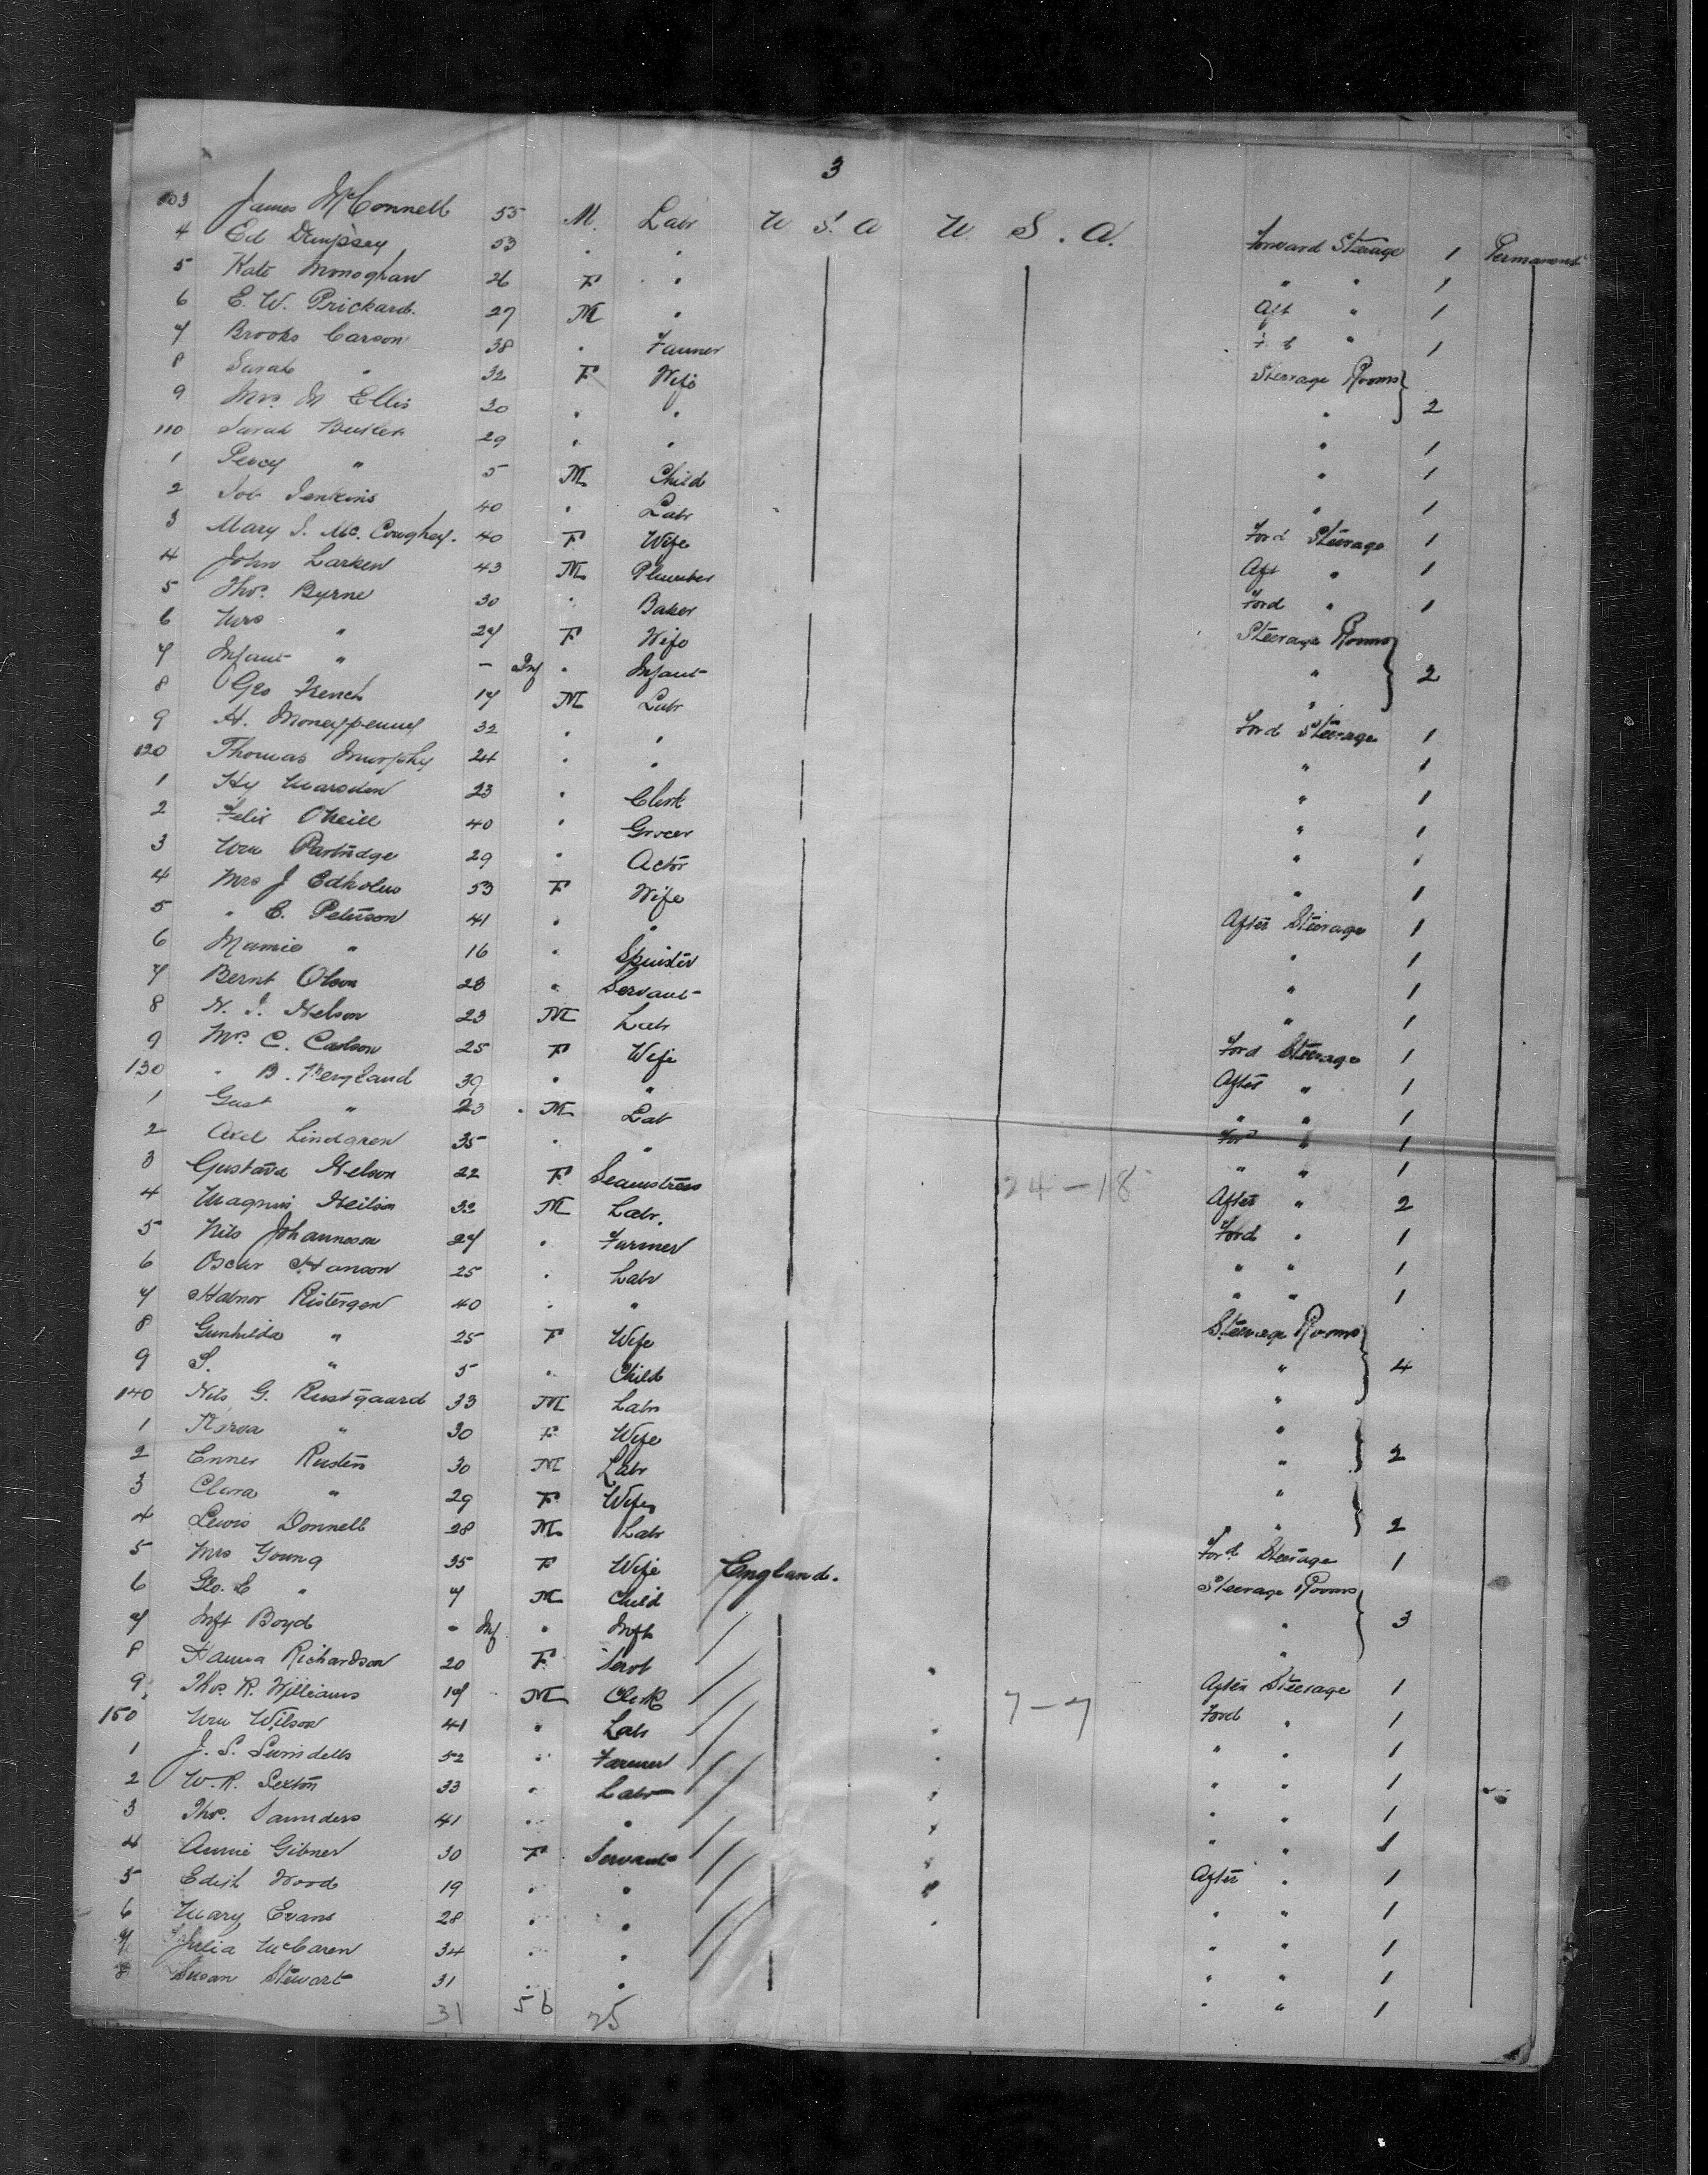 3
103 James McConnell 55 M. Labr U S. A U. S. A. Forward Steerage 1 Permanent
4 Ed Dempsey 53 " " " " 1
5 Kate Monoghan 26 F " Aft " 1
6 E. W. Prickard. 27 M " " 1
7 Brooks Carson 38 " Farmer Steerage Rooms
8 Sarah " 32 F Wife " 2
9 Mrs. M Ellis 30 " " " 1
110 Sarah 29 " " " 1
1 Percy " 5 M Child " 1
2 Job Jenkins 40 " Labr Ford Steerage 1
3 Mary J. Mc. Coughey. 40 F Wife Aft " 1
4 John Larken 43 M Plumber Ford " 1
5 Thos. Byrne 30 " Baker Steerage Rooms
6 Mrs " 27 F Wife " 2
7 Infant " - Inf " Infant "
8 Geo 17 M Labr Ford Steerage 1
9 H. Moneypenny 32 " " " 1
120 Thomas Murphy 24 " " " 1
1 Hy Marsden 23 " Clerk " 1
2 Felix ONeill 40 " Grocer " 1
3 Wm Partridge 29 " Actor " 1
4 Mrs J Edholm 53 F Wife After Steerage 1
5 " E. Peterson 41 " " " 1
6 Mamie " 16 " Spinster " 1
7 Bernt Olson 28 " Servant " 1
8 N. J. Nelson 23 M Labr Ford Steerage 1
9 Mrs. C. Carlson 25 F Wife After " 1
130 " B. Bergland 39 " " " " 1
1 Gust " 23 M Lab For " 1
2 Axel Lindgren 35 " " " " 1
3 Gustava Nelson 22 F Seamstress 24-18 After " 2
4 Magnus Neilson 32 M Labr. Ford " 1
5 Nils Johannson 27 " Farmer " " 1
6 Oscar Hanson 25 " Labr " " 1
7 Halvor 40 " " Steerage Rooms
8 Gunhilda " 25 F Wife " 4
9 S. " 5 " Child "
140 Nils G. Rustgaard 33 M Labr "
1 " 30 F Wife " 2
2 Enner Rusten 30 M Labr "
3 Clara " 29 F Wife " 2
4 Lewis Donnell 28 M Labr Ford. Steerage 1
5 Mrs Young 35 F Wife England. Steerage Rooms
6 Geo. E " 7 M Child " 3
7 Inft Boyd - Inf " Inft "
8 Hanna Richardson 20 F Servt After Steerage 1
9 Thos. R. Williams 17 M Clerk 7-7 Ford " 1
150 Wm Wilson 41 " Labr " " 1
1 J. S. 52 " Farmer " " 1
2 W. R. Sexton 33 " Labr " " 1
3 Thos. Saunders 41 " " " " 1
4 Annie Gibner 30 F Servant After " 1
5 Edith Wood 19 " " " " 1
6 Mary Evans 28 " " " " 1
7 Julia McLaren 34 " " " " 1
8 Susan Stewart 31 " " " " 1
31 56 25